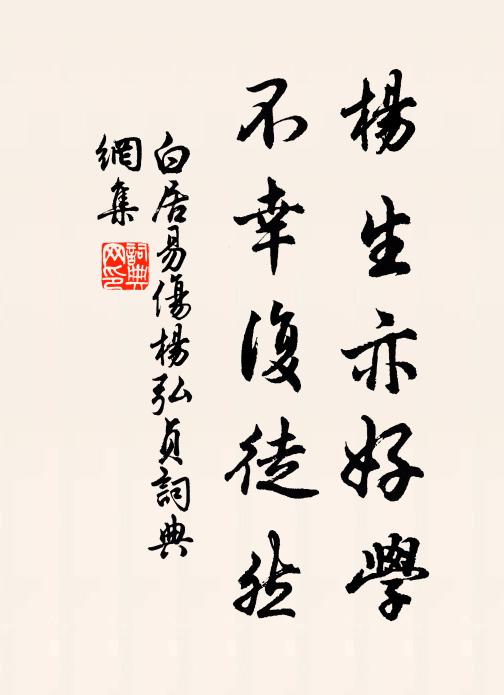 楊生亦好學
不幸復徒然
白居易傷楊弘貞詞典
網集
詞典
网印